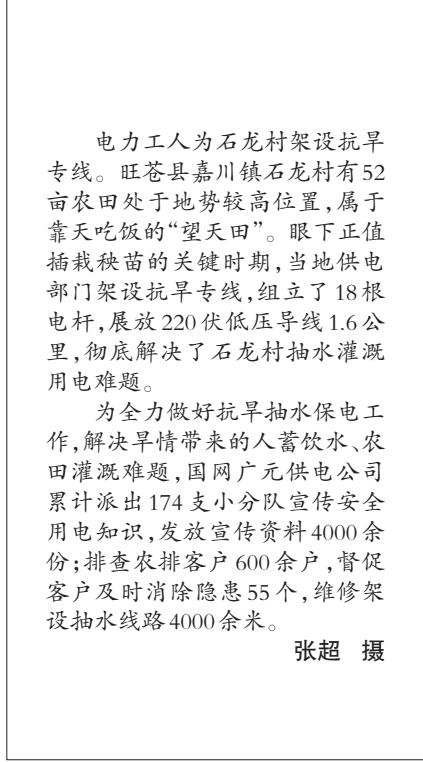 电力工人为石龙村架设抗旱
专线。旺苍县嘉川镇石龙村有52
亩农田处于地势较高位置,属于
靠天吃饭的“望天田”。眼下正值
插栽秧苗的关键时期,当地供电
部门架设抗旱专线,组立了18根
电杆,展放220伏低压导线1.6公
里,彻底解决了石龙村抽水灌溉
用电难题。
为全力做好抗旱抽水保电工
作,解决旱情带来的人蓄饮水、农
田灌溉难题,国网广元供电公司
累计派出174支小分队宣传安全
用电知识,发放宣传资料4000余
份;排查农排客户600余户,督促
客户及时消除隐患55个,维修架
设抽水线路4000余米。
张超 摄